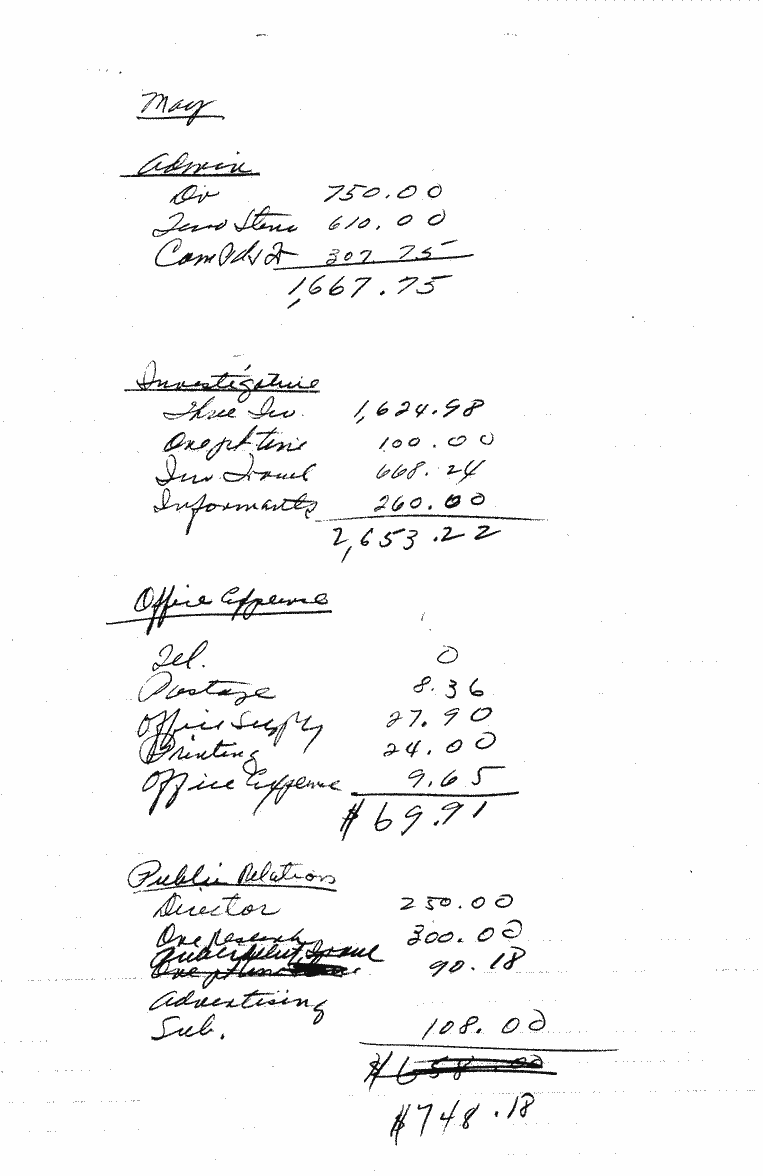 May
Admin
Dir 750.00
Two Steno 610.00
307.75
1,667.75
Investigative
Three Inv. 1,624.98
One pt time 100.00
Inv Travel 668.24
Informants 260.00
2,653.22
Office Expense
Tel. 0
Postage 8.36
Office Supply 27.90
Printing 24.00
Office Expense 9.65
$69.91
Public Relations
Director 250.00
One research 300.00
Travel 90.18
Advertising
Sub. 108.00
$658.00
$748.18